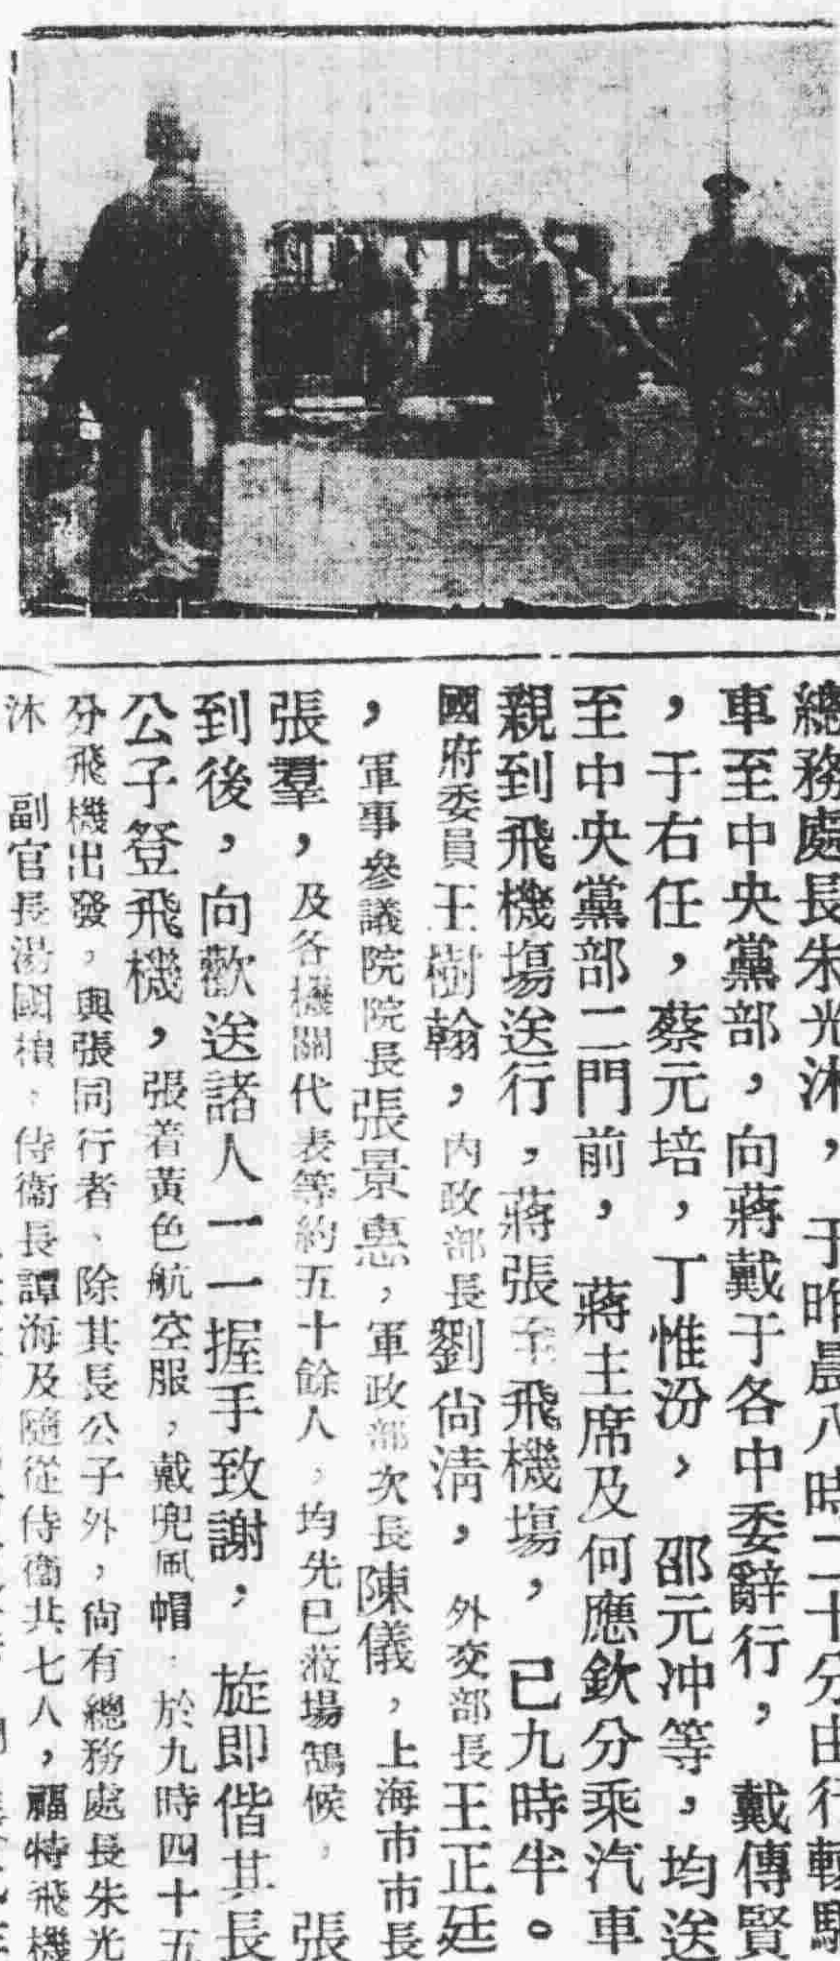 總務處長朱光沐，于昨晨八時二十分由行轅
車至中央黨部，向蔣戴于各中委辭行，戴傳賢
，于右任，蔡元培，丁惟汾，邵元冲等，均送
至中央黨部二門前，蔣主席及何應欽分乘汽車
親到飛機塲送行，蔣張至飛機塲，已九時半。
國府委員王樹翰，內政部長劉尙淸，外交部長王正廷
，軍事參議院院長張景惠，軍政部次長陳儀，上海市市長
張羣，及各機關代表等約五十餘人，均先已蒞塲鵠候，張
到後，向歡送諸人一一握手致謝，旋即偕其長
公子登飛機，張着黃色航空服，戴兜風帽，於九時四十五
分飛機出發，與張同行者、除其長公子外，尙有總務處長朱光
沐 副官長湯國楨，侍衞長譚海及隨從侍衞共七人，福特飛機